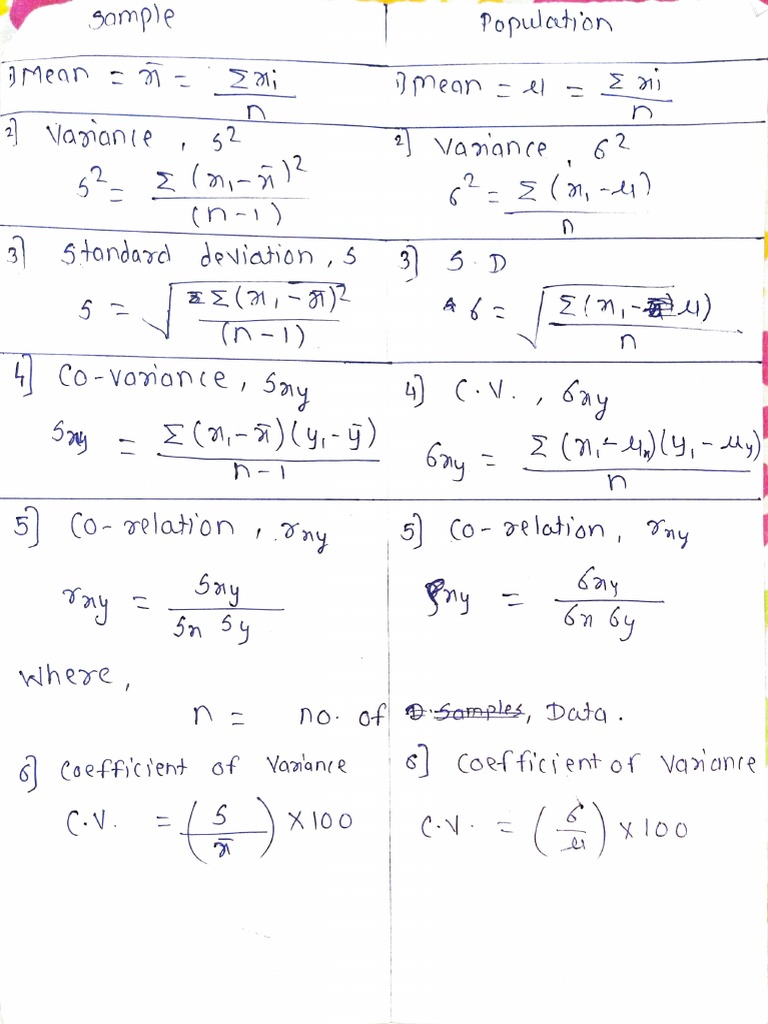 Sample
Population
1) Mean = x̄ = Σxi / n
1) Mean = μ = Σxi / n
2] Variance, s²
s² = Σ(x₁ - x̄)² / (n-1)
2] Variance, σ²
σ² = Σ(x₁ - μ) / n
3] Standard deviation, s
s = √(Σ(x₁ - x̄)² / (n-1))
3] S.D
σ = √(Σ(x₁ - μ) / n)
4] Co-variance, Sxy
Sxy = Σ(x₁ - x̄)(y₁ - ȳ) / n-1
4] C.V., σxy
σxy = Σ(x₁ - μx)(y₁ - μy) / n
5] Co-relation, rxy
rxy = Sxy / Sx Sy
5] Co-relation, rxy
ρxy = σxy / σx σy
Where,
n = no. of Samples, Data.
6] Coefficient of Variance
C.V. = (S / x̄) × 100
6] Coefficient of Variance
C.V. = (σ / μ) × 100